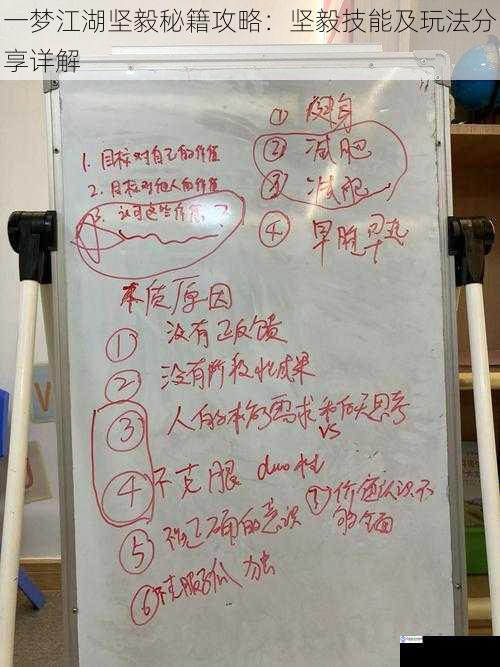 一梦江湖坚毅秘籍攻略：坚毅技能及玩法分
享详解
① 健身
② 减肥
③ 减肥
④ 早起 早
1. 目标对自己的价值
2. 目标对他人的价值
3. 认可这些价值 ?
本质原因
① 没有正反馈
② 没有阶段性成果
③ 人的本能需求和后天思考
vs
④ 不克服 duo 性
⑤ 不正确的意识
⑥ 不克服 方法
⑦ 价值认识不
够全面